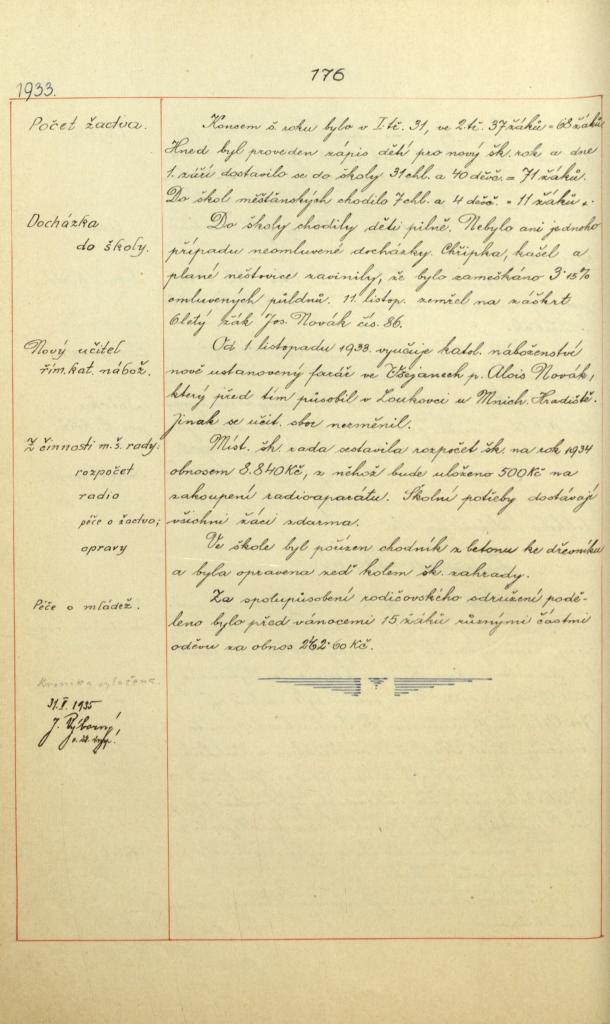 176
1933.
Počet žactva.
Koncem š. roku bylo v I. tř. 31, ve 2. tř. 37 žáků = 68 žáků
Hned byl proveden zápis dětí pro nový šk. rok a dne
1. září dostavilo se do školy 31 chl. a 40 děvč. = 71 žáků.
Do škol měšťanských chodilo 7 chl. a 4 děvč. = 11 žáků.
Docházka
do školy.
Do školy chodily děti pilně. Nebylo ani jednoho
případu neomluvené docházky. Chřipka, kašel a
plané neštovice zavinily, že bylo zameškáno 3·15%
omluvených půldnů. 11. listop. zemřel na záškrt
6letý žák Jos. Novák čís. 86.
Nový učitel
řím. kat. nábož.
Od 1. listopadu 1933. vyučuje katol. náboženství
nově ustanovený farář ve Všejanech p. Alois Novák,
který před tím působil v Loukovci u Mnich. Hradiště.
Jinak se učit. sbor nezměnil.
Z činnosti m. š. rady.
rozpočet
radio
péče o žactvo;
opravy
Míst. šk. rada sestavila rozpočet šk. na rok 1934
obnosem 8.840 Kč, z něhož bude uloženo 500 Kč na
zakoupení radioaparátu. Školní potřeby dostávají
všichni žáci zdarma.
Ve škole byl pořízen chodník z betonu ke dřevníku
a byla opravena zeď kolem šk. zahrady.
Péče o mládež.
Za spolupůsobení rodičovského sdružení podě-
leno bylo před vánocemi 15 žáků různými částmi
oděvu za obnos 262·60 Kč.
Kronika vyložena.
31. X. 1935
J. Výborný,